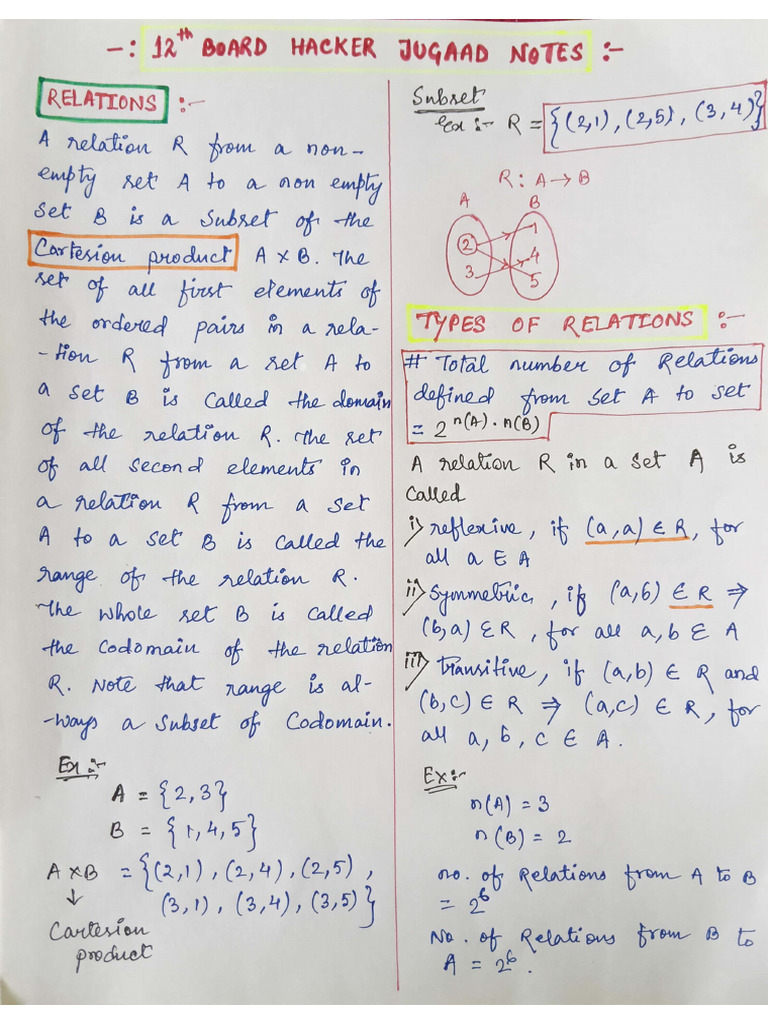 -: 12th BOARD HACKER JUGAAD NOTES :-
RELATIONS :-
A relation R from a non-
empty set A to a non empty
Set B is a subset of the
Cartesion product A x B. The
set of all first elements of
the ordered pairs in a rela-
-tion R from a set A to
a set B is called the domain
of the relation R. The set
of all second elements in
a relation R from a set
A to a set B is called the
range of the relation R.
The whole set B is called
the Codomain of the relation
R. Note that range is al-
-ways a subset of Codomain.
Ex :-
A = {2,3}
B = {1,4,5}
A x B = {(2,1), (2,4), (2,5),
↓ (3,1), (3,4), (3,5)}
Cartesion
product
Subset
Ex :- R = {(2,1), (2,5), (3,4)}
R : A → B
A B
1
2
4
3
5
TYPES OF RELATIONS :-
# Total number of Relations
defined from Set A to set
= 2^n(A)·n(B)
A relation R in a set A is
called
i) reflexive, if (a,a) ∈ R, for
all a ∈ A
ii) Symmetric, if (a,b) ∈ R ⇒
(b,a) ∈ R, for all a,b ∈ A
iii) transitive, if (a,b) ∈ R and
(b,c) ∈ R ⇒ (a,c) ∈ R, for
all a, b, c ∈ A.
Ex :-
n(A) = 3
n(B) = 2
no. of Relations from A to B
= 2^6
No. of Relations from B to
A = 2^6.